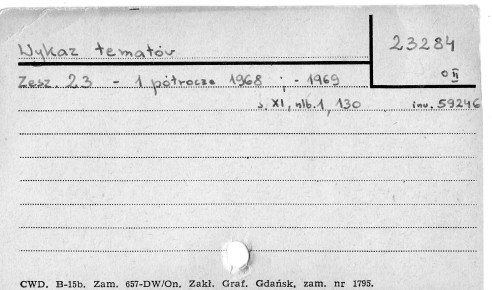 Wykaz tematów
23284
o II
Zesz. 23 - 1 półrocze 1968 ; - 1969
s. XI, nlb. 1, 130 inw. 59246
CWD. B-15b. Zam. 657-DW/On. Zakł. Graf. Gdańsk, zam. nr 1795.